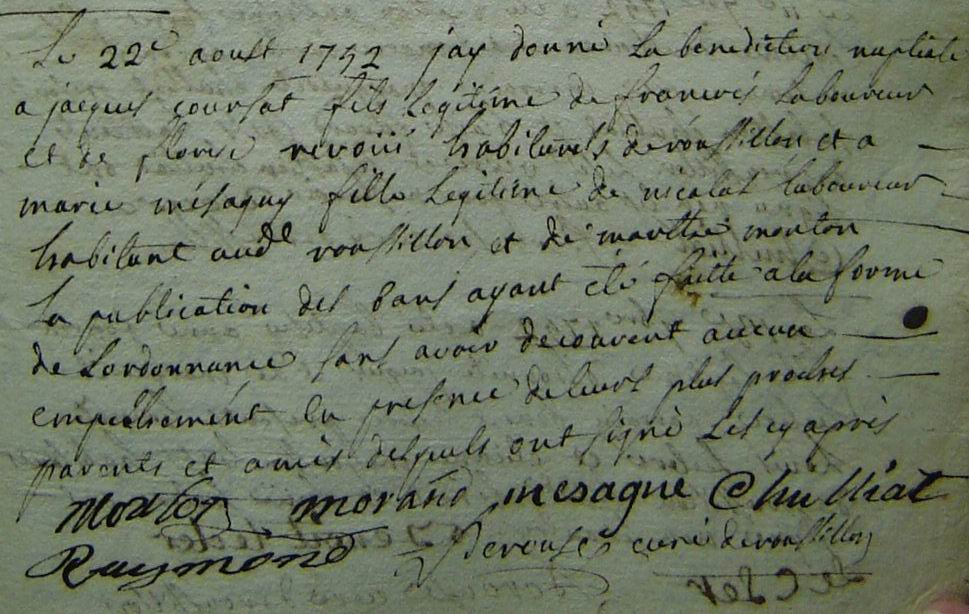 Le 22e aoust 1752 jay donné La benediction nuptiale
a jacques coursat fils Legitime de francois Laboureur
et de florie revoiii habitants de roussillon et a
marie mesagny fille Legitime de nicolas laboureur
habitant aud roussillon et de marthe monton
La publication des bans ayant eté faitte a la forme
de Lordonnance sans avoir decouvert aucun
empechement En presence de leurs plus proches
parents et amis desquels ont signé Les cy apres
monton morand mesagne Chulliat
Raymond curé de roussillon